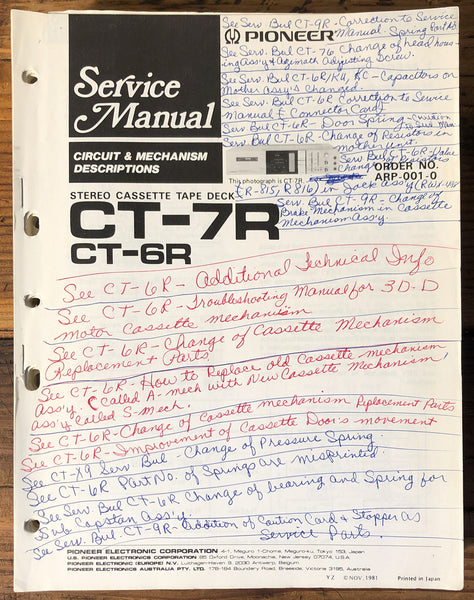 See Serv Bul CT-9R - Correction to Service
PIONEER
Manual - Spring Part No
See Serv. Bul CT-76 Change of head hous-
ing Ass'y & Azimuth Adjusting Screw.
See Serv. Bul CT-6R/KU, KC - Capacitors on
Mother Ass'y Changed.
See Serv. Bul CT-6R Correction to Service
Manual & Connector Card
Serv Bul CT-6R - Door Spring - Correction
to Serv. Man
Serv Bul CT-6R - Change of Resistors in
Mother unit.
Serv Bul CT-6R - Value
Change of Resistors
(R-815, R816) in Jack Ass'y
Serv Bul CT-9R - Change of
Brake Mechanism in Cassette
Mechanism Ass'y.
Service
Manual
CIRCUIT & MECHANISM
DESCRIPTIONS
This photograph is CT-7R
ORDER NO.
ARP-001-0
STEREO CASSETTE TAPE DECK
CT-7R
CT-6R
See CT-6R - Additional Technical Info
See CT-6R - Troubleshooting Manual for 3D-D
motor Cassette mechanism
See CT-6R - Change of Cassette Mechanism
Replacement Parts
See CT-6R - How to Replace old Cassette mechanism
Ass'y. Called A-mech with New Cassette Mechanism
ass'y called S-mech.
See CT-6R - Change of Cassette mechanism Replacement Parts
See CT-6R - Improvement of Cassette Door's movement
See CT-X9 Serv Bul - Change of Pressure Spring.
See CT-6R Part No. of Springs are misprinted.
See Serv Bul CT-6R Change of bearing and Spring for
Sub Capstan Ass'y.
See Serv. Bul CT-9R - Addition of Caution Card & Stopper As
Service Parts.
PIONEER ELECTRONIC CORPORATION 4-1, Meguro 1-Chome, Meguro-ku, Tokyo 153, Japan
U.S. PIONEER ELECTRONICS CORPORATION 85 Oxford Drive, Moonachie, New Jersey 07074, U.S.A.
PIONEER ELECTRONIC (EUROPE) N.V. Luithagen-Haven 9, 2030 Antwerp, Belgium
PIONEER ELECTRONICS AUSTRALIA PTY. LTD. 178-184 Boundary Road, Braeside, Victoria 3195, Australia
YZ © NOV. 1981 Printed in Japan